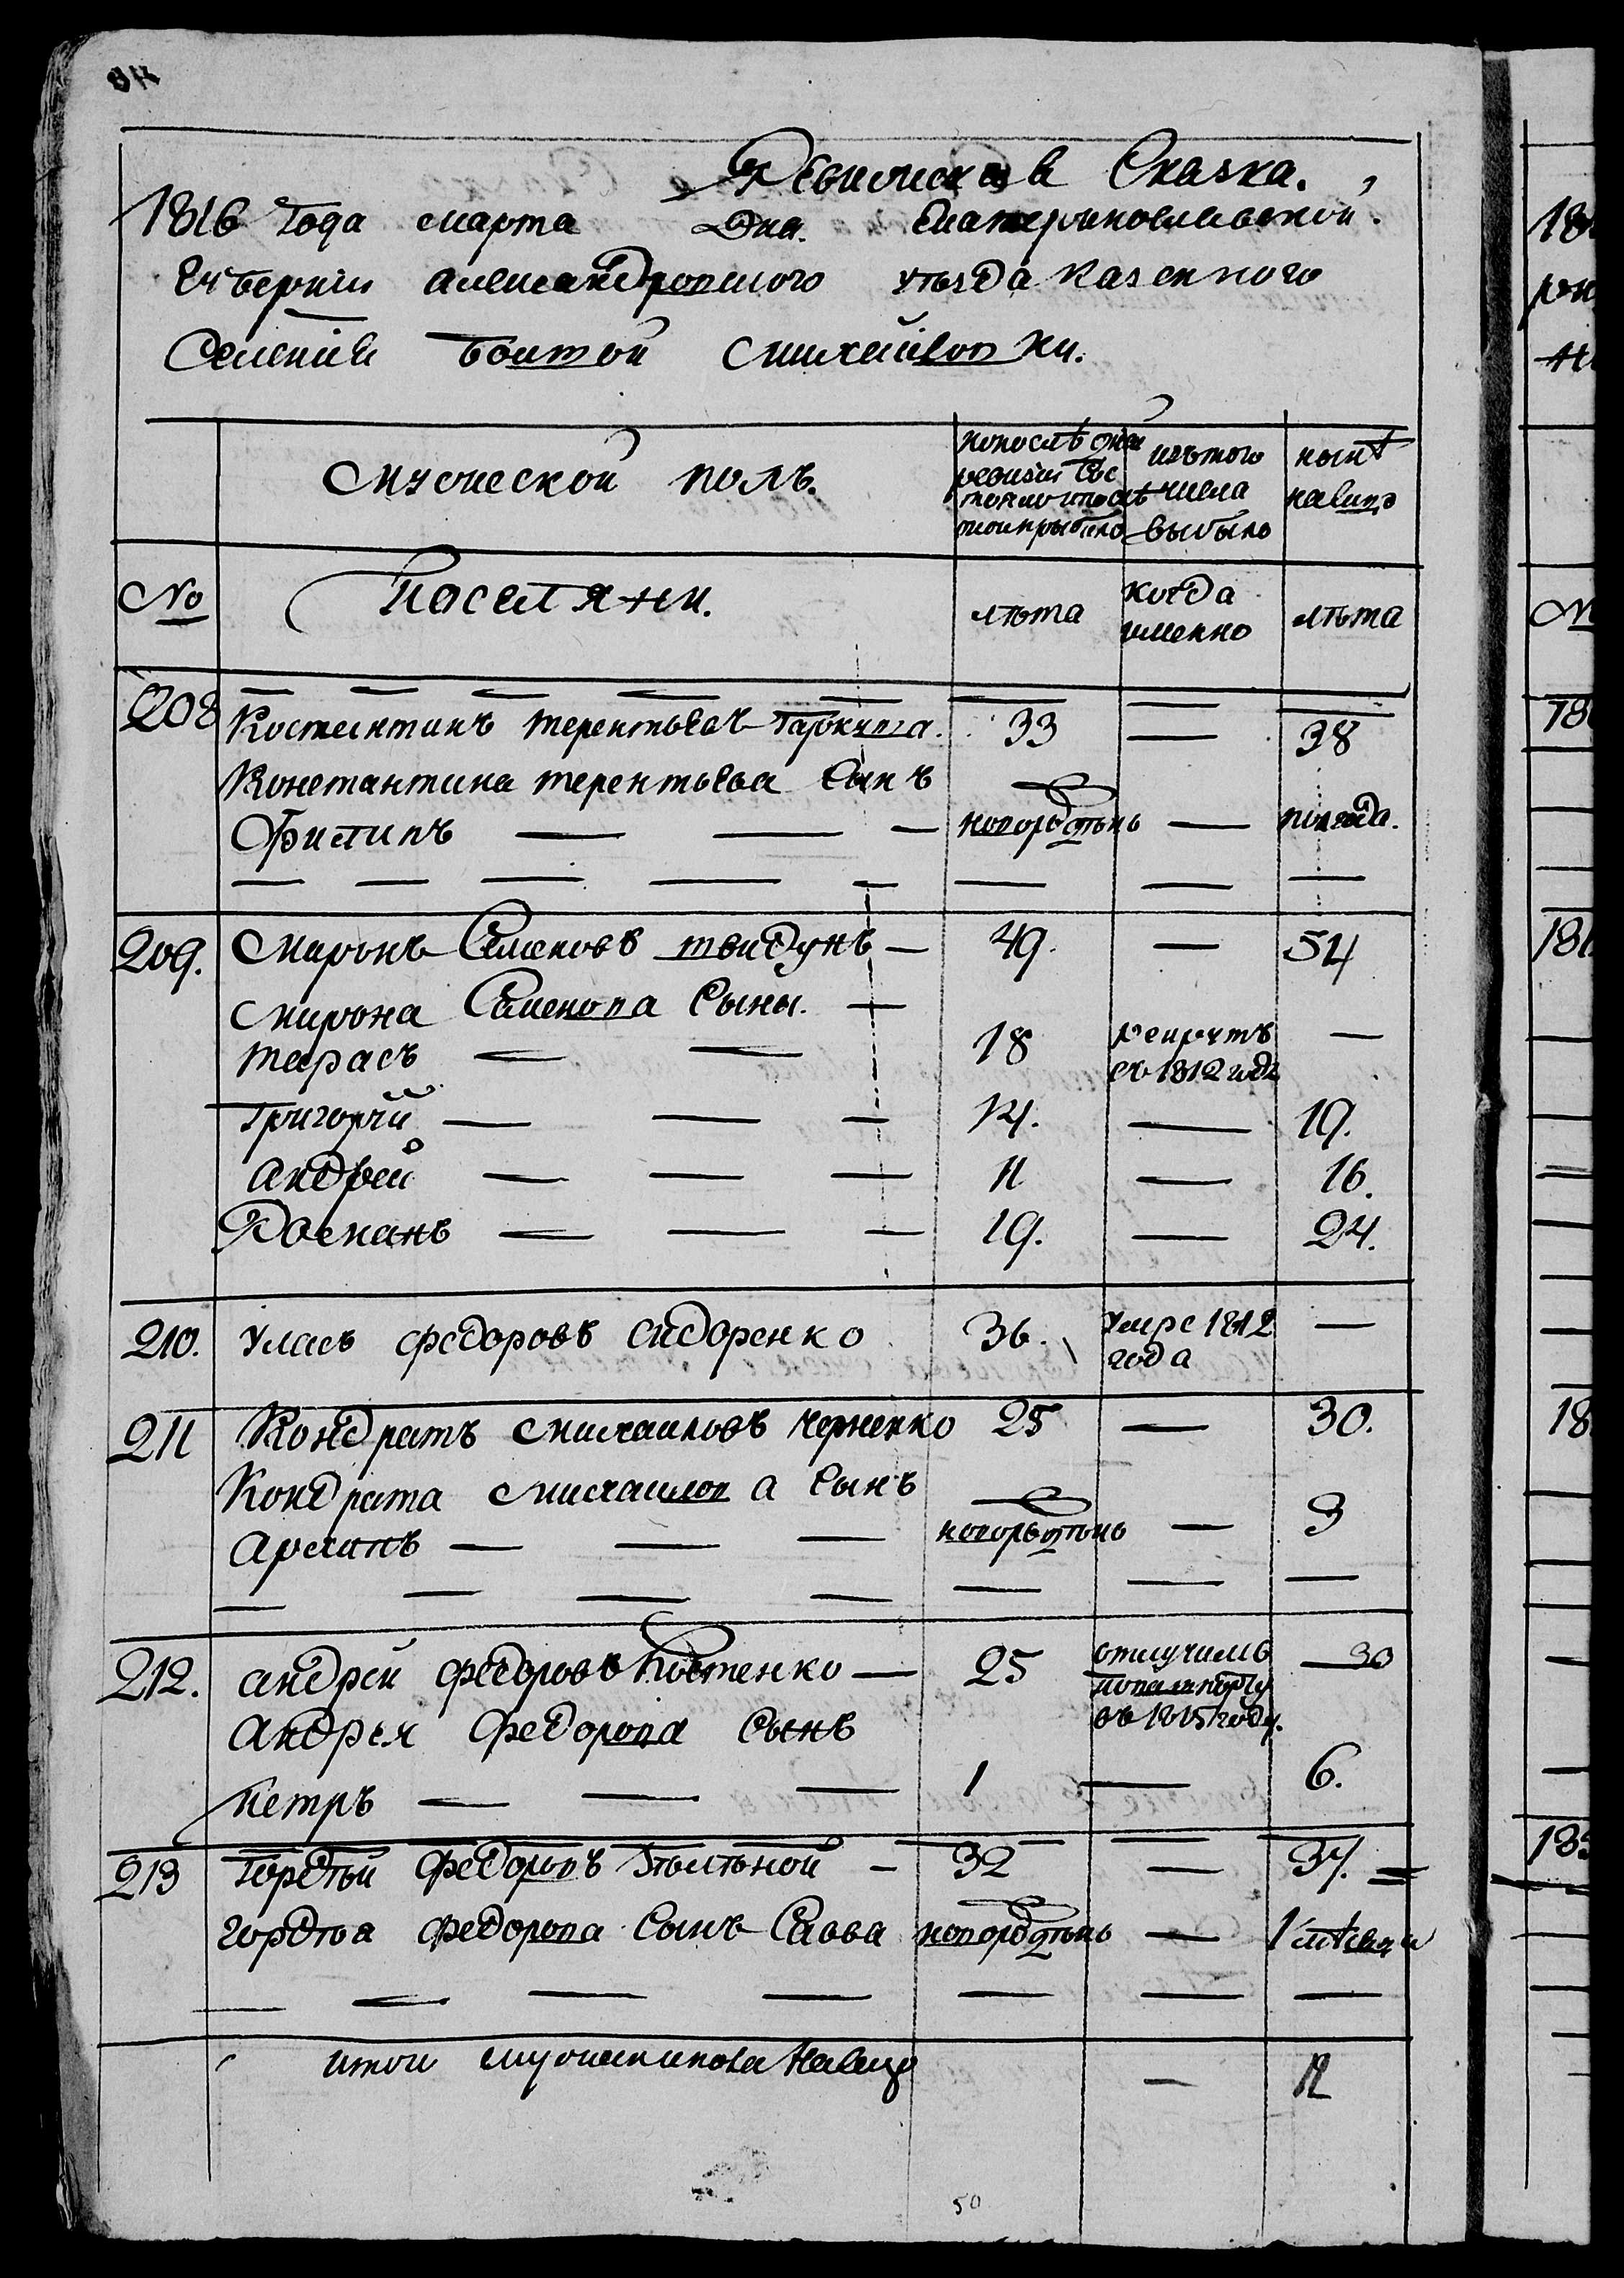 Ревизская Сказка.
1816 Года марта Дня. Екатеринославской
Губернии александровского уѣзда казенного
Селения белой михайловки.
мужеской полъ.
попослѣдней ревизии состояло и послѣ того прибыло
изътого числа выбыло
нынѣ налицо
№
Поселяни.
лѣта
когда именно
лѣта
208 Костентинъ терентьевъ 33 — 38
Константина терентьева Сынъ
Филипъ — — — новорожденъ — полгода.
209. миронъ Семеновъ — 49. — 54
мирона Семенова Сыны. —
тарасъ — — 18 рекрутъ въ 1812 году —
Григорій — — — 14. — 19.
андрей — — — 11 — 16.
Романъ — — — 19. — 24.
210. Уласъ федоровъ сидоренко 36. Умре 1812 года —
211 Кондратъ михаиловъ черненко 25 — 30.
Кондрата михаилова Сынъ
— — — новорожденъ — 3
212. андрей федоровъ Костенко — 25 отлучилъ попашпорту въ 1815 году. — 30
андрея федорова Сынъ
петръ — — — 1 — 6.
213 Гордѣй федоровъ — 32 — 37.
гордѣя федорова Сынъ Савва новорожденъ — 1 мѣсяц
итого мужескапола налицо — 12
50